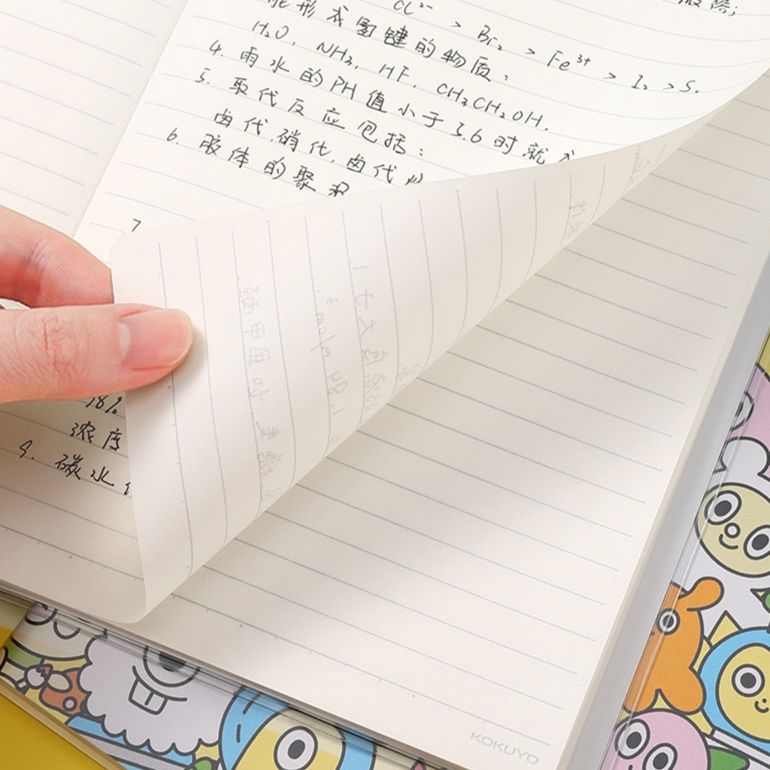 Cl²⁻ > Br₂ > Fe³⁺ > I₂ > S.
能形成氢键的物质：
H₂O, NH₃, HF, CH₃CH₂OH.
4. 雨水的PH值小于5.6时就
5. 取代反应包括：
卤代硝化,卤代
6. 液体的聚
7
98%
浓度
9. 碳水
KOKUYO